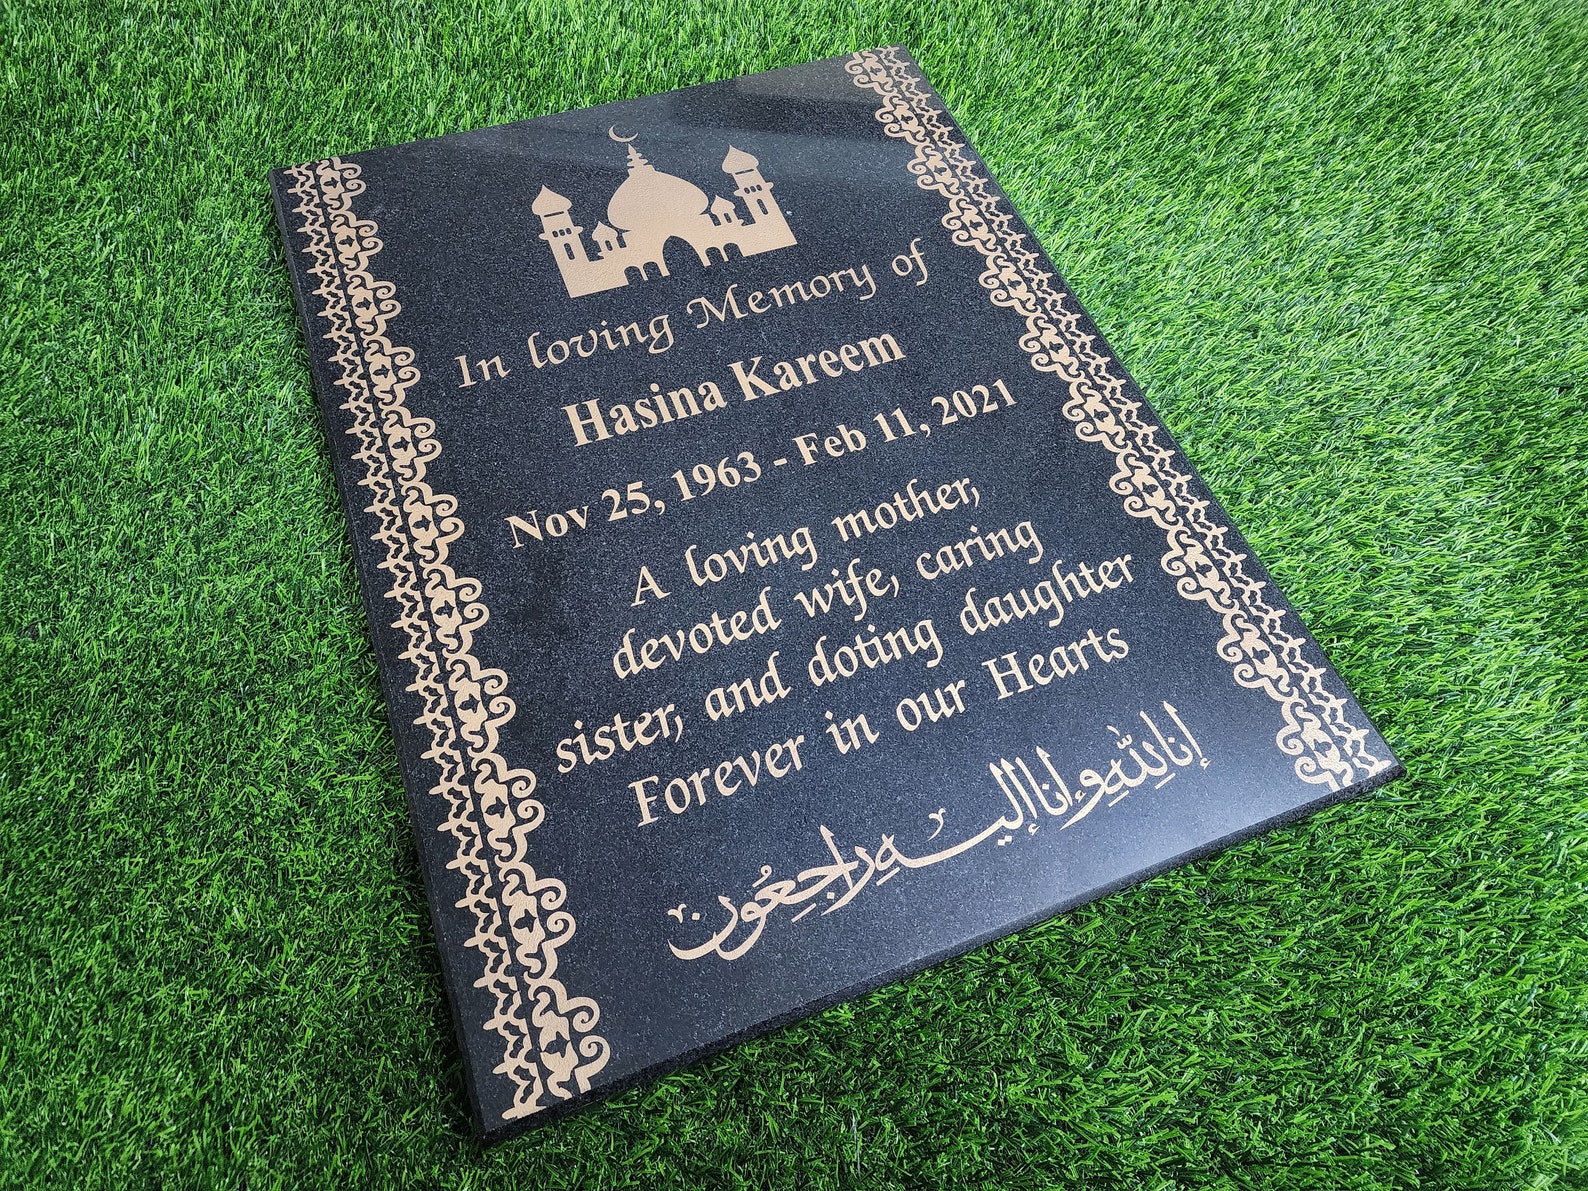 In loving Memory of
Hasina Kareem
Nov 25, 1963 - Feb 11, 2021
A loving mother,
devoted wife, caring
sister, and doting daughter
Forever in our Hearts
إنا لله وإنا إليه راجعون